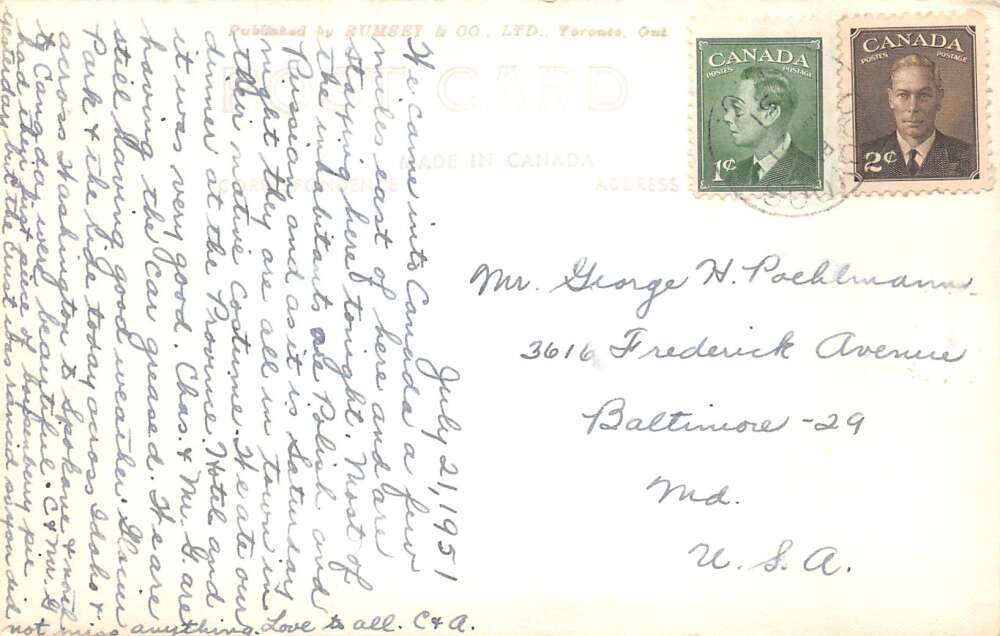 Published by RUMSEY & CO., LTD., Toronto, Ont
POST CARD
MADE IN CANADA
CORRESPONDENCE
ADDRESS
CANADA
POSTES POSTAGE
1¢
CANADA
POSTES POSTAGE
2¢
July 21, 1951
We came into Canada a few
miles east of here and are
staying here tonight. Most of
the inhabitants are Polish and
Russian and as it is Saturday
night they are all in town in
their native costume. We ate our
dinner at the Provine. Hotel and
it was very good. Chas. & Mr. G. are
having the car greased. We are
still having good weather. Glacier
Park & the ride today across Idaho &
across Washington to Spokane & north
to Canada, were beautiful. C & Mr. G
had their first piece of huckleberry pie
yesterday but the crust was rancid so you did
not miss anything. Love to all. C & A.
Mr. George H. Poehlmann
3616 Frederick Avenue
Baltimore -29
Md.
U.S.A.